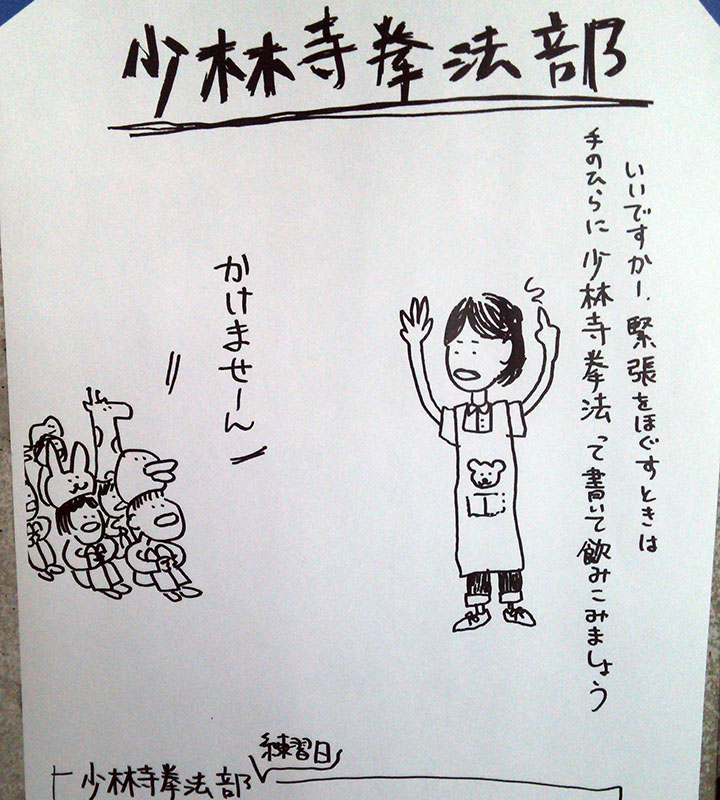 少林寺拳法部
いいですかー、緊張をほぐすときは
手のひらに少林寺拳法って書いて飲みこみましょう
かけませーん
練習日
少林寺拳法部